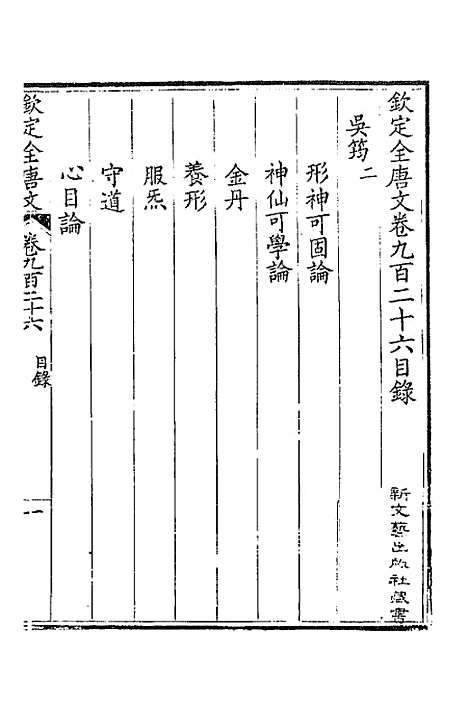 欽定全唐文卷九百二十六目錄
新文藝出版社藏書
吳筠二
形神可固論
神仙可學論
金丹
養形
服炁
守道
心目論
欽定全唐文
卷九百二十六
目錄
一